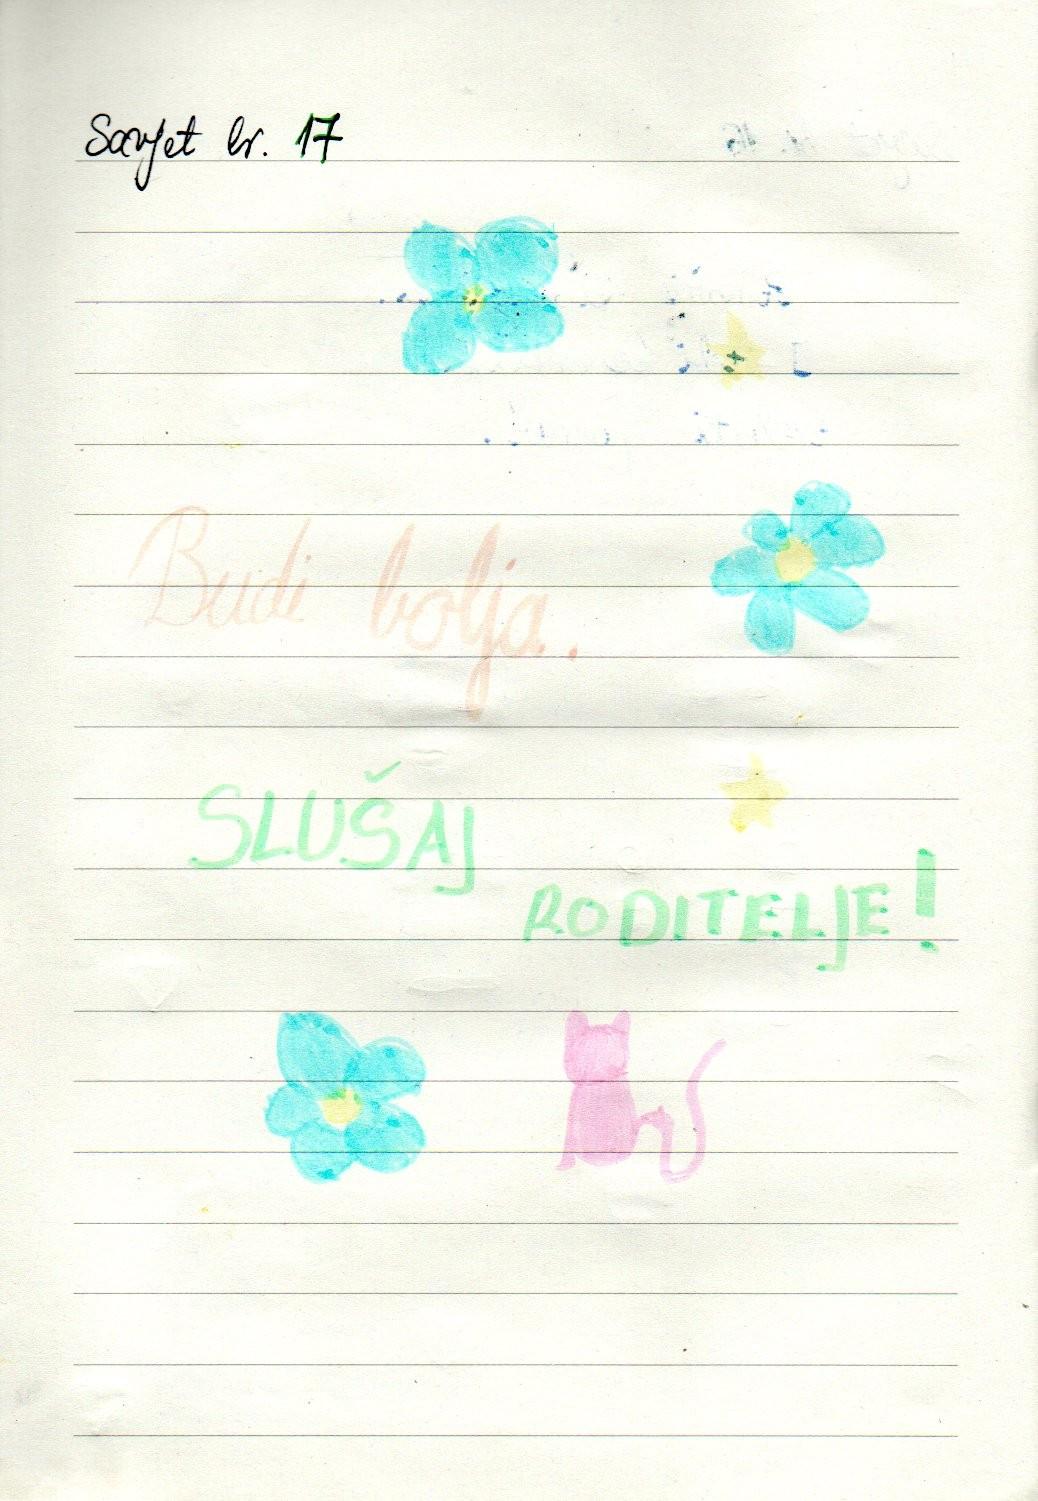 Savjet br. 17
Budi bolja.
SLUŠAJ
RODITELJE!